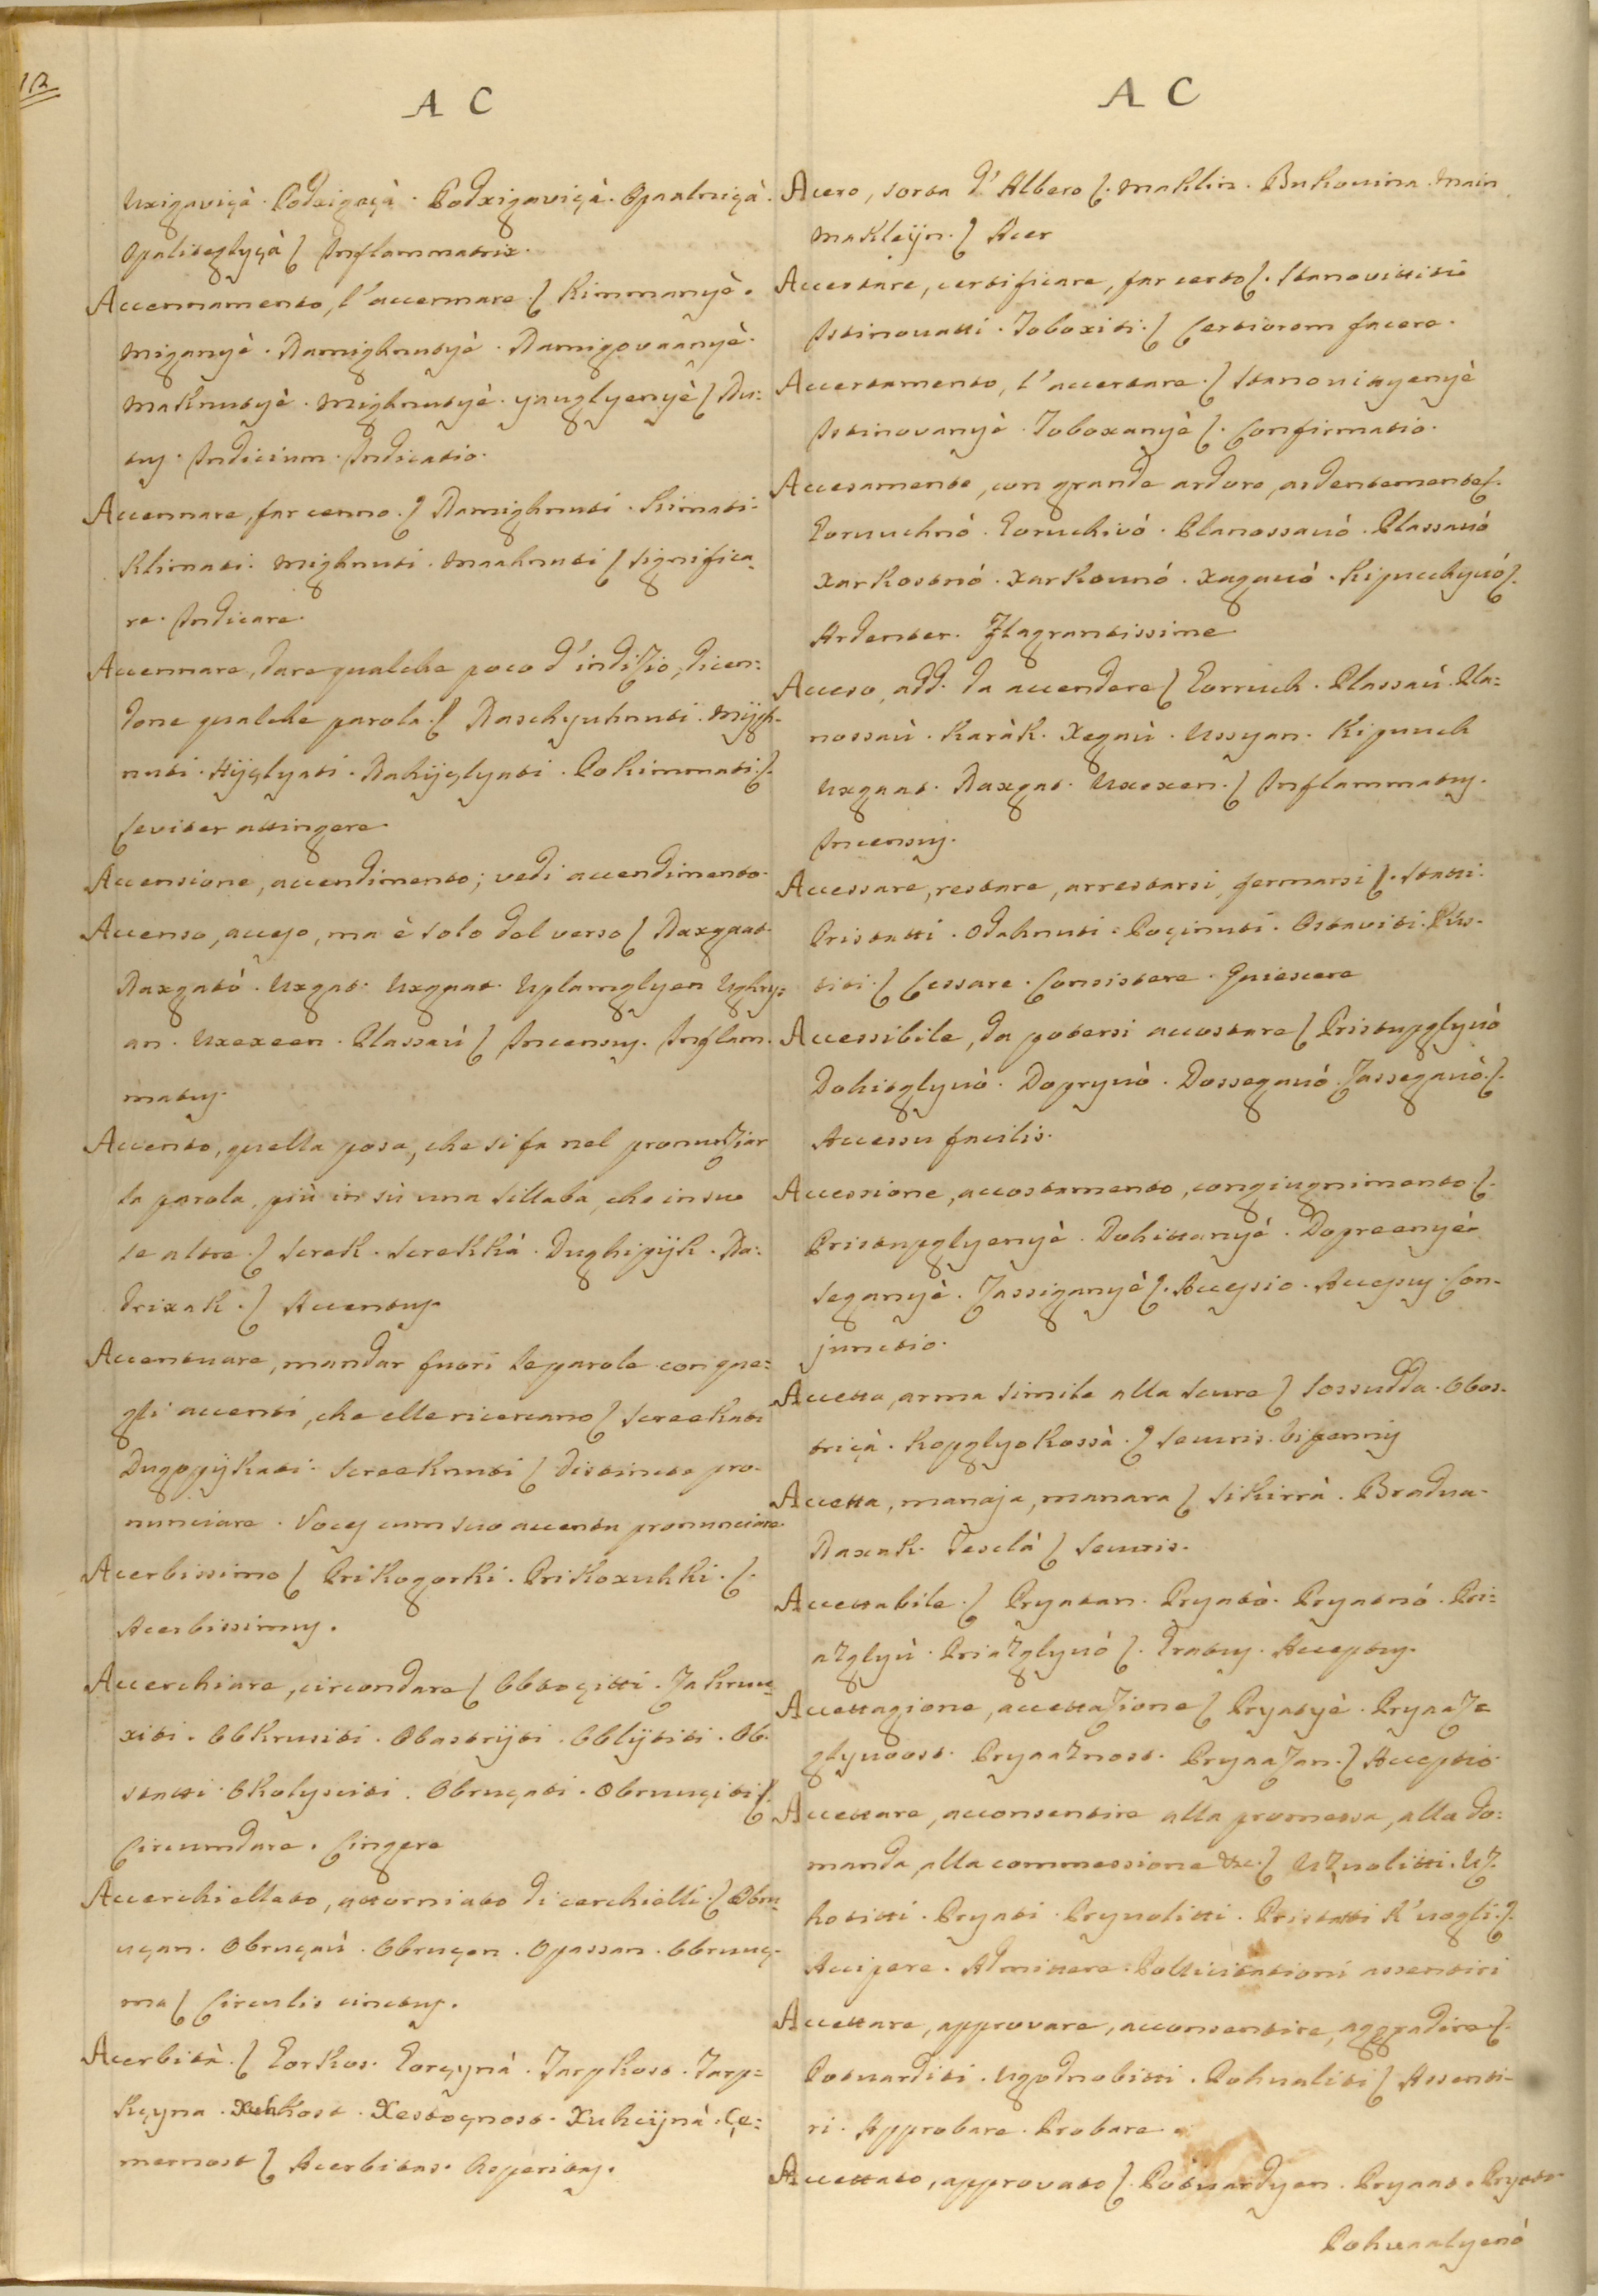 12
A C
Uxigaviçà. Podxigaçà. Podxigaviçà. Opaalniçà.
Opaliteglyçà ʃ Inflammatrix.
Accennamento, l'accennare. ʃ Kimmanyè.
Miganyè. Namighnutyè. Namigovaanyè.
Maknutyè. Mighnutyè. yauglyenyè ʃ Nu=
tus. Indicium. Indicatio.
Accennare, far cenno. ʃ Namighnuti. Kimati.
Klimati. Mighnuti. Maahnuti ʃ Significa=
re. Indicare.
Accennare, dare qualche poco d'indizio, dicen=
done qualche parola. ʃ Naschyuhnuti. Mijgh=
nuti. Hijçlyati. Nahijçlyati. Pokimmati. ʃ.
Leviter attingere.
Accensione, accendimento; vedi accendimento.
Accenso, acceso, ma è solo del verso ʃ Naxgaat.
Naxgatò. Uxgat. Uxgaat. Uplamglyen Ughny=
an. Uxexeen. Plassaú ʃ Incensus. Inflam=
matus.
Accento, quella posa, che si fa nel pronunziar
la parola, più in sù una sillaba, che in su
le altre. ʃ Screk. Screkkà. Dughipijk. Na=
drixak. ʃ Accentus.
Accentuare, mandar fuori le parole con que=
gli accenti, che elle ricercano ʃ Screekati
Dugopijkati. Screeknuti ʃ Distincte pro=
nunciare. Voces cum suo accentu pronunciare.
Acerbissimo ʃ Prikogorki. Prikoxuhki. ʃ.
Acerbissimus.
Accerchiare, circondare ʃ Obtoçitti. Zakruu=
xiti. Obkrusiti. Obastrijti. Oblijtiti. Ob=
statti. Okolysciti. Obruçati. Obruuçiti ʃ.
Circumdare. Cingere
Accerchiellato, attorniato di cerchielli. ʃ Obru=
uçan. Obruçaú. Obruçen. Opassan. Obruuç=
ma ʃ Circulis cinctus.
Acerbità. ʃ Gorkos. Gorçynà. Zarpkost. Zarp=
kçyna. Xuhkost. Xestoçnost. Xuhcijnà. Çe=
mernost ʃ Acerbitas. Asperitas.
A C
Acero, sorta d'Albero ʃ. Maklin. Bukovina. Main
Makleijn. ʃ Acer
Accertare, certificare, far certo ʃ. Stanovittiti
Istinovatti. Toboxiti. ʃ Certiorem facere.
Accertamento, l'accertare. ʃ Stanovityenyè
Istinovanyè. Toboxanyè ʃ. Confirmatio.
Accesamente, con grande ardore, ardentemente ʃ.
Goruuchnó. Goruchivó. Planossauó. Plassauó
Xarkostnó. Xarkounó. Xagauó. Kipucchyuó ʃ.
Ardenter. Flagrantissime
Acceso, add. da accendere ʃ Gorruch. Plassaú. Pla=
nossaú. Karàk. Xegaú. Ussyan. Kipuuch
Uxgaat. Naxgat. Uxexen. ʃ Inflammatus.
Incensus.
Accessare, restare, arrestarsi, fermarsi ʃ. Statti.
Pristatti. Odahnuti. Poçinuti. Ostaviti. Pús=
titi. ʃ Cessare. Consistere. Quiescere
Accessibile, da potersi accostare ʃ Pristupglyuó
Dohitglyuó. Dopryuó. Dosseganó. Zasseganó. ʃ.
Accessu facilis.
Accessione, accostamento, congiugnimento ʃ.
Pristupglyenyè. Dohittanyè. Dopreenyè.
Seganyè. Zassiganyè ʃ. Accessio. Accessus. Con=
junctio.
Accetta, arma simile alla scure ʃ Sossudda. Obos=
triçà. Kopglyokossà. ʃ Securis. bipennis
Accetta, manaja, manara ʃ Sikirrà. Bradua.
Naxak. Tesclà ʃ Securis.
Accettabile. ʃ Pryatan. Pryatò. Pryatnó. Pri=
azglyú. Priazglyuó ʃ. Gratus. Acceptus.
Accettagione, accettazione ʃ Pryatyè. Pryaaz=
glyuost. Pryaaznost. Pryaazan. ʃ Acceptio
Accettare, acconsentire alla promessa, alla do=
manda, alla commessione &c. ʃ Uzuolitti. Uz=
hotitti. Pryati. Pryuolitti. Pristatti k'uogli. ʃ.
Accipere. Admittere. Pollicitationi assentiri
Accettare, approvare, acconsentire, aggradire ʃ.
Potuarditi. Ugodnobitti. Pohualiti ʃ Assenti=
ri. Approbare. Probare.
Accettato, approvato ʃ. Potuardyen. Pryaat. Pryatò
Pohuaalyenó